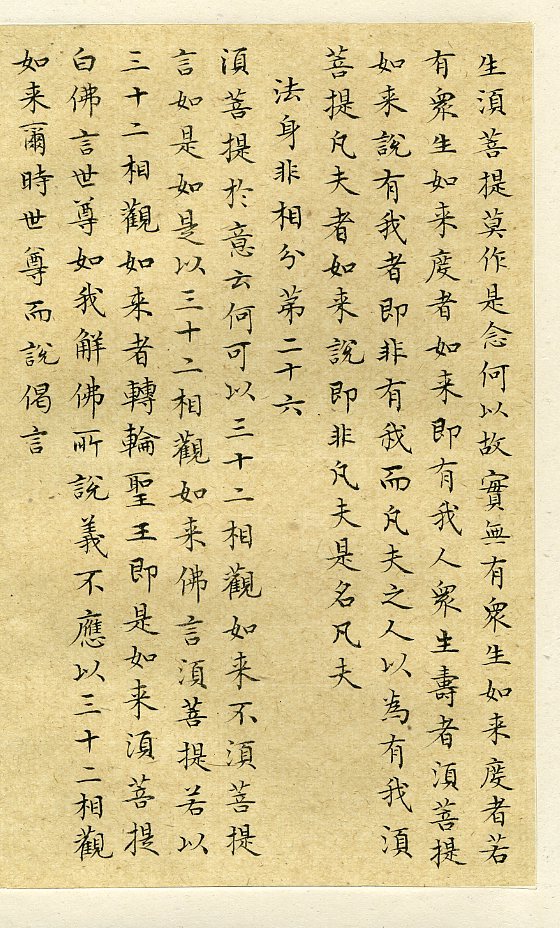 生須菩提莫作是念何以故實無有眾生如来度者若
有眾生如来度者如来即有我人眾生壽者須菩提
如来說有我者即非有我而凡夫之人以為有我須
菩提凡夫者如来說即非凡夫是名凡夫
法身非相分第二十六
須菩提於意云何可以三十二相觀如来不須菩提
言如是如是以三十二相觀如来佛言須菩提若以
三十二相觀如来者轉輪聖王即是如来須菩提
白佛言世尊如我解佛所說義不應以三十二相觀
如来爾時世尊而說偈言